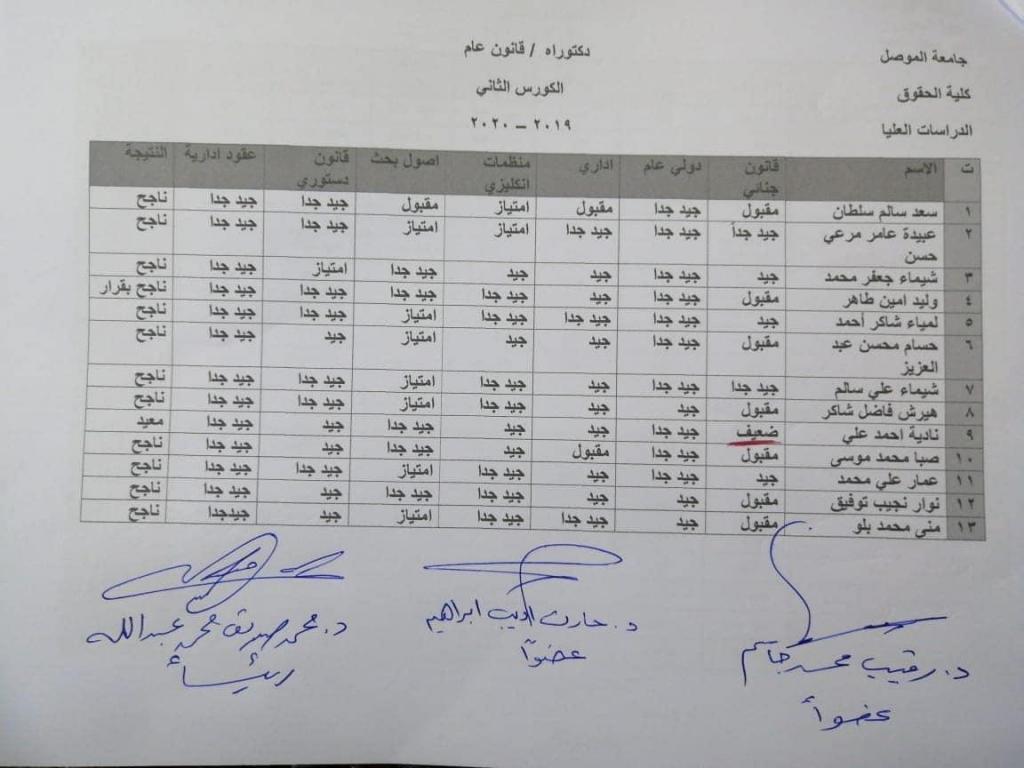 جامعة الموصل
كلية الحقوق
الدراسات العليا
دكتوراه / قانون عام
الكورس الثاني
٢٠١٩ – ٢٠٢٠
ت الاسم قانون جنائي دولي عام اداري منظمات انكليزي اصول بحث قانون دستوري عقود ادارية النتيجة
١ سعد سالم سلطان مقبول جيد جدا مقبول امتياز مقبول جيد جدا جيد جدا ناجح
٢ عبيدة عامر مرعي حسن جيد جداً جيد جدا جيد جدا امتياز امتياز جيد جدا جيد جدا ناجح
٣ شيماء جعفر محمد جيد جيد جدا جيد جيد جيد جدا امتياز جيد جدا ناجح
٤ وليد امين طاهر مقبول جيد جدا جيد جيد جدا جيد جدا جيد جدا جيد جدا ناجح بقرار
٥ لمياء شاكر أحمد جيد جيد جدا جيد جدا جيد جدا امتياز جيد جدا جيد جدا ناجح
٦ حسام محسن عبد العزيز مقبول جيد جدا جيد جيد امتياز جيد جيد جدا ناجح
٧ شيماء علي سالم جيد جدا جيد جدا جيد جيد جدا امتياز جيد جدا جيد جدا ناجح
٨ هيرش فاضل شاكر مقبول جيد جيد جيد جدا امتياز جيد جدا جيد جدا ناجح
٩ نادية احمد علي ضعيف جيد جدا جيد جيد جيد جدا جيد جيد جدا معيد
١٠ صبا محمد موسى مقبول جيد جدا مقبول جيد جيد جدا جيد جيد جدا ناجح
١١ عمار علي محمد جيد جيد جدا جيد جيد جدا امتياز جيد جدا جيد جدا ناجح
١٢ نوار نجيب توفيق مقبول جيد جيد جيد جدا جيد جدا جيد جيد جدا ناجح
١٣ منى محمد بلو مقبول جيد جيد جدا جيد جدا امتياز جيد جيدجدا ناجح
د. رقيب محمد جاسم
عضواً
د. حارث اديب ابراهيم
عضواً
د. محمد صديق محمد عبدالله
رئيساً